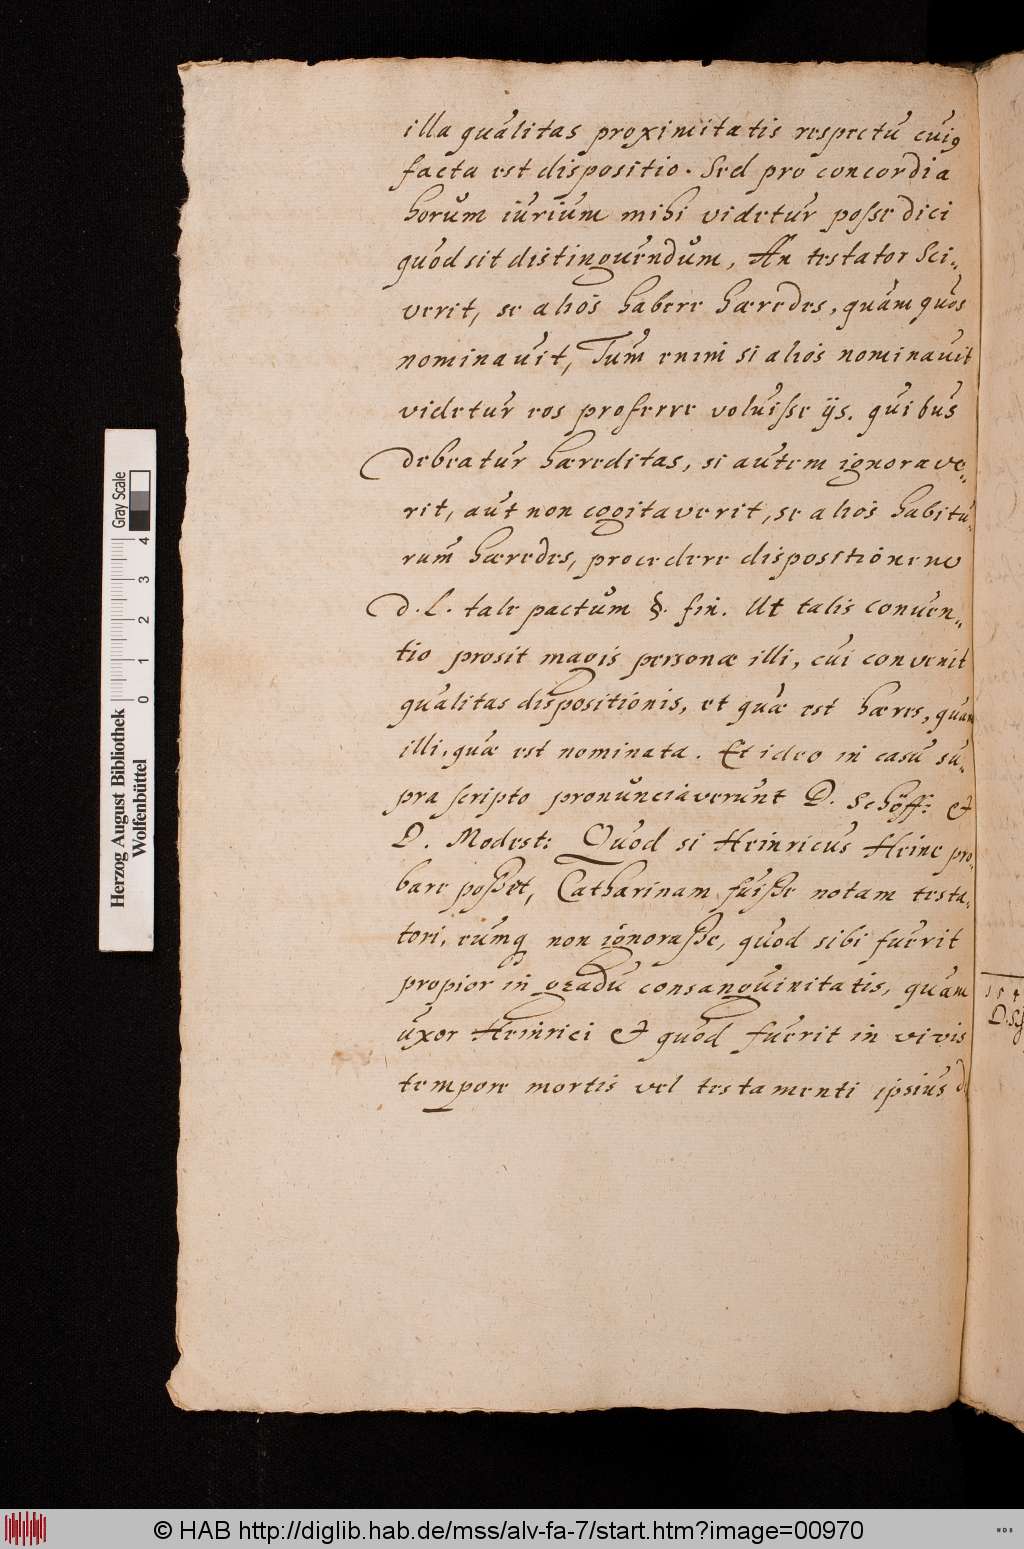 illa qualitas proximitatis respectu cuiq
facta est dispositio. Sed pro concordia
horum iurium mihi videtur posse dici
quod sit distinguendum, An testator Sci„
verit, se alios habere hæredes, quam quos
nominauit, Tum enim si alios nominauit
videtur eos proferre voluisse ijs. quibus
debeatur hæreditas, si autem ignorave„
rit, aut non cogitaverit, se alios habitu„
rum hæredes, procedere dispositionem
d. l. tale pactum §. fin. Ut talis conuen„
tio prosit magis personæ illi, cui convenit
qualitas dispositionis, et quæ est hæres, quam
illi, quæ est nominata. Et ideo in casu su„
pra scripto pronunciaverunt D. Schöff: &
D. Modest: Quod si Heinricus Heine pro„
bare poßet, Catharinam fuiße notam testa„
tori, eumq non ignoraße, quod sibi fuerit
propior in gradu consanguinitatis, quam
uxor Heinrici & quod fuerit in vivis
tempore mortis vel testamenti ipsius
D. Sch
Gray Scale
0 1 2 3 4
Herzog August Bibliothek
Wolfenbüttel
© HAB http://diglib.hab.de/mss/alv-fa-7/start.htm?image=00970